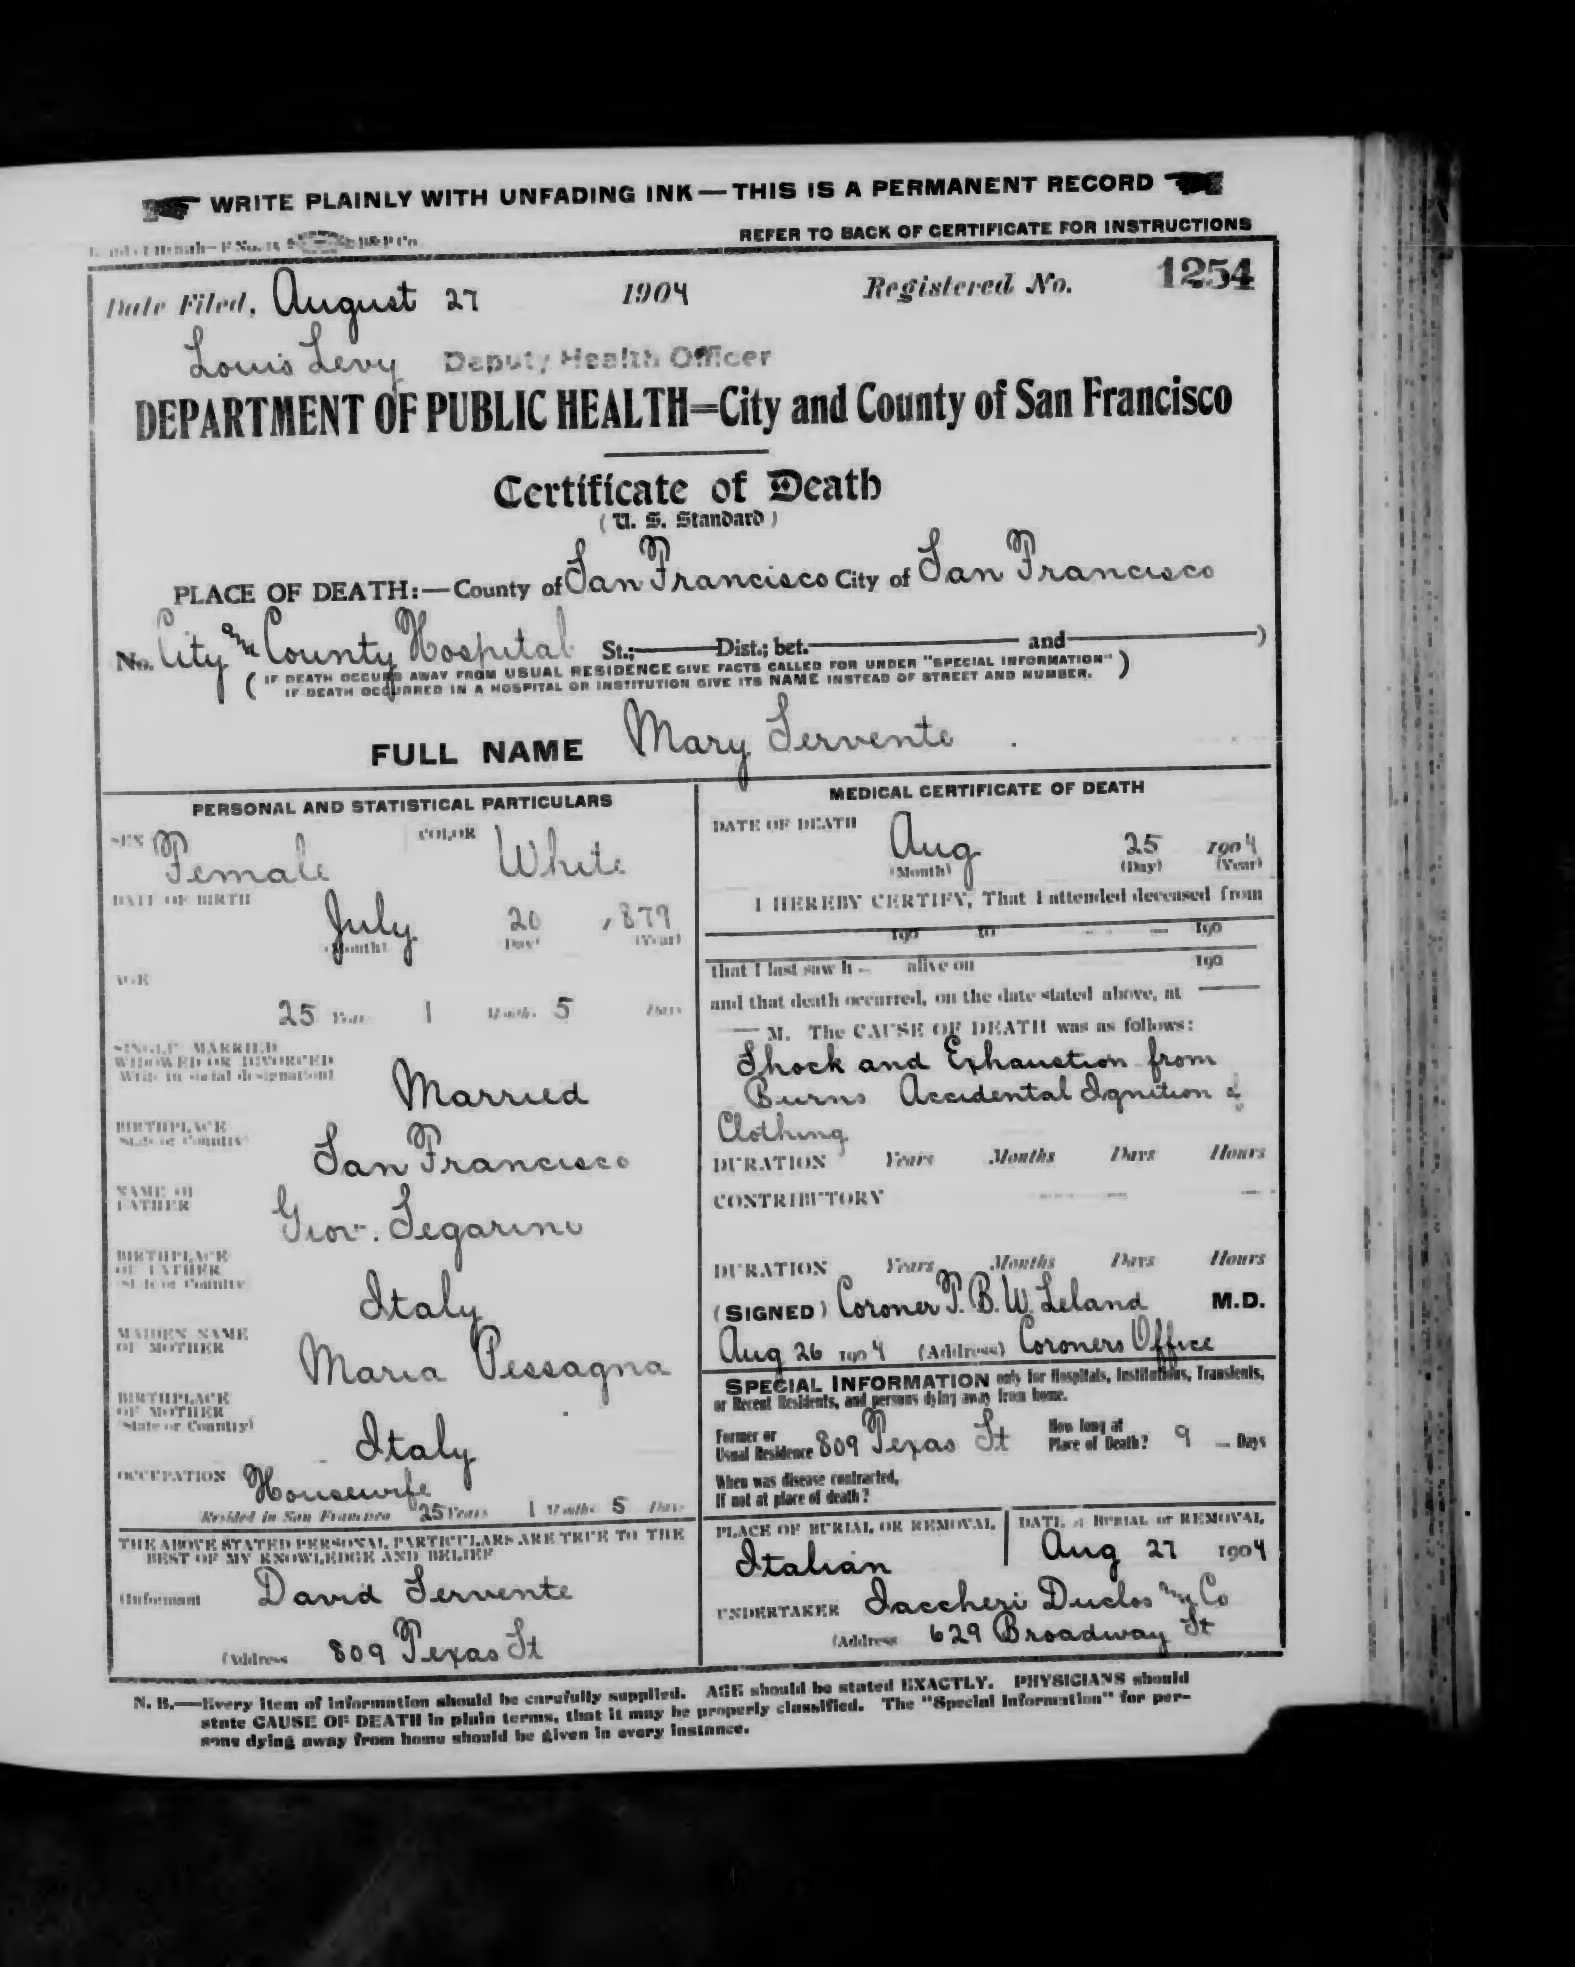 WRITE PLAINLY WITH UNFADING INK—THIS IS A PERMANENT RECORD
REFER TO BACK OF CERTIFICATE FOR INSTRUCTIONS
Date Filed, August 27 1904 Registered No. 1254
Louis Levy Deputy Health Officer
DEPARTMENT OF PUBLIC HEALTH=City and County of San Francisco
Certificate of Death
(U. S. Standard)
PLACE OF DEATH:—County of San Francisco City of San Francisco
No. City and County Hospital St.; Dist.; bet. and )
( IF DEATH OCCURS AWAY FROM USUAL RESIDENCE GIVE FACTS CALLED FOR UNDER "SPECIAL INFORMATION" )
IF DEATH OCCURRED IN A HOSPITAL OR INSTITUTION GIVE ITS NAME INSTEAD OF STREET AND NUMBER.
FULL NAME Mary Servente
PERSONAL AND STATISTICAL PARTICULARS
SEX Female COLOR White
DATE OF BIRTH
July 20 , 879
(Month) (Day) (Year)
AGE
25 Years 1 Months 5 Days
SINGLE MARRIED
WIDOWED OR DIVORCED
Write in social designation)
Married
BIRTHPLACE
State or Country
San Francisco
NAME OF
FATHER
Giov. Segarini
BIRTHPLACE
OF FATHER
State or Country
Italy
MAIDEN NAME
OF MOTHER
Maria Pessagna
BIRTHPLACE
OF MOTHER
(State or Country)
Italy
OCCUPATION Housewife
Resided in San Francisco 25 Years 1 Months 5 Days
THE ABOVE STATED PERSONAL PARTICULARS ARE TRUE TO THE
BEST OF MY KNOWLEDGE AND BELIEF
(Informant David Servente
(Address 809 Texas St
MEDICAL CERTIFICATE OF DEATH
DATE OF DEATH
Aug 25 1904
(Month) (Day) (Year)
I HEREBY CERTIFY, That I attended deceased from
190 to 190
that I last saw h – alive on 190
and that death occurred, on the date stated above, at
M. The CAUSE OF DEATH was as follows:
Shock and Exhaustion from
Burns Accidental Ignition of
Clothing
DURATION Years Months Days Hours
CONTRIBUTORY
DURATION Years Months Days Hours
(SIGNED) Coroner T. B. W. Leland M.D.
Aug 26 1904 (Address) Coroners Office
SPECIAL INFORMATION only for Hospitals, Institutions, Transients,
or Recent Residents, and persons dying away from home.
Former or
Usual Residence 809 Texas St
How long at
Place of Death? 9 – Days
When was disease contracted,
If not at place of death?
PLACE OF BURIAL OR REMOVAL
Italian
DATE of BURIAL or REMOVAL
Aug 27 1904
UNDERTAKER Iaccheri Duclos and Co
(Address 629 Broadway St
N. B.—Every item of information should be carefully supplied. AGE should be stated EXACTLY. PHYSICIANS should
state CAUSE OF DEATH in plain terms, that it may be properly classified. The "Special Information" for per-
sons dying away from home should be given in every instance.